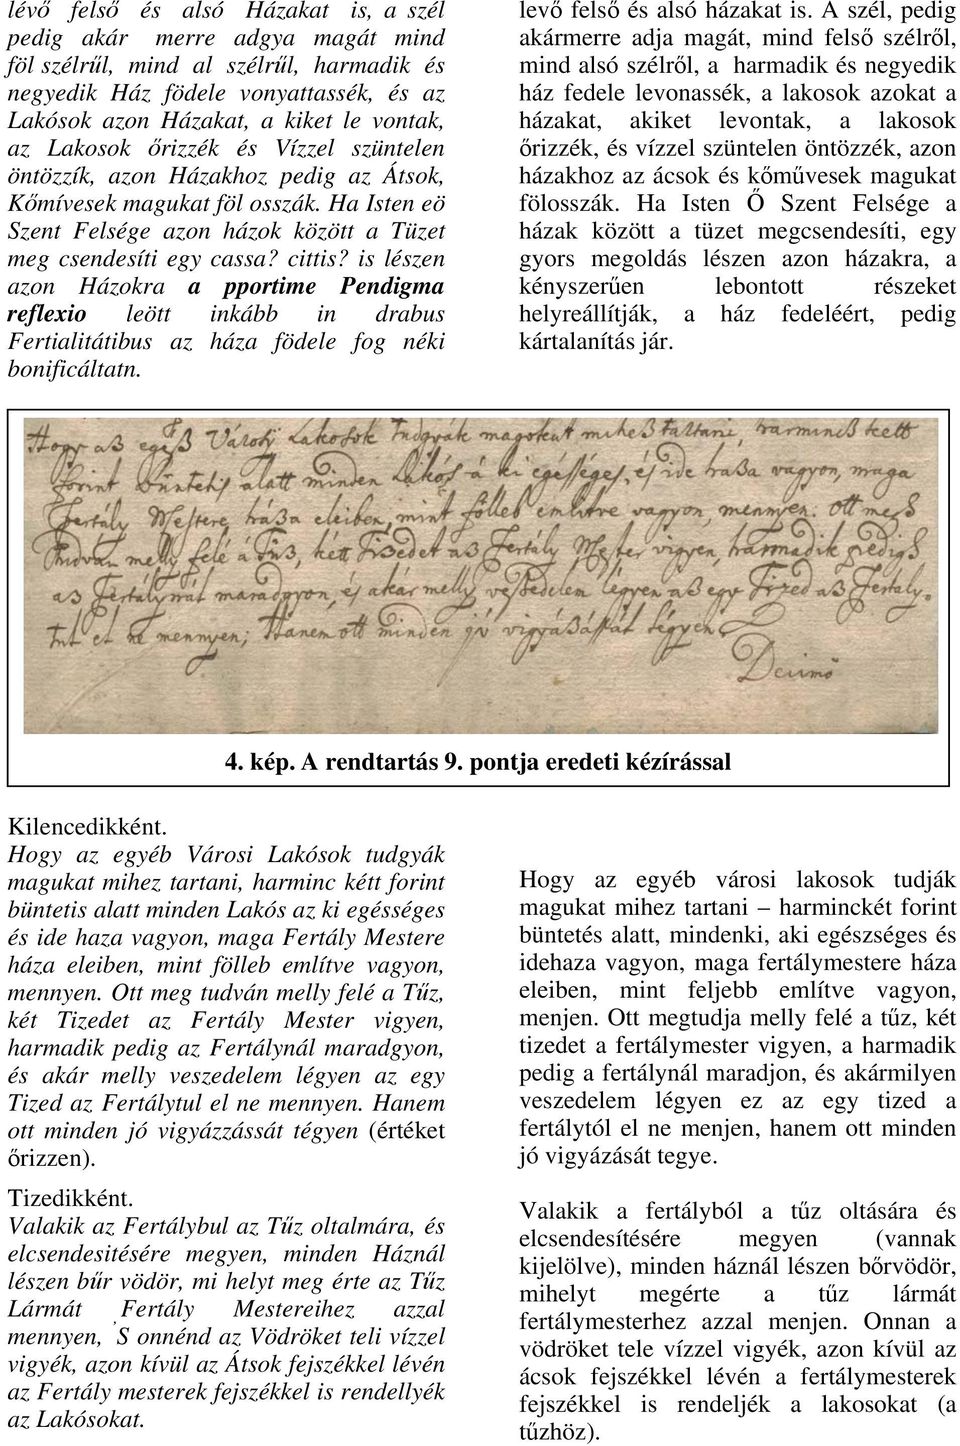 lévő felső és alsó Házakat is, a szél
pedig akár merre adgya magát mind
föl szélrűl, mind al szélrűl, harmadik és
negyedik Ház födele vonyattassék, és az
Lakósok azon Házakat, a kiket le vontak,
az Lakosok őrizzék és Vízzel szüntelen
öntözzík, azon Házakhoz pedig az Átsok,
Kőmívesek magukat föl osszák. Ha Isten eö
Szent Felsége azon házok között a Tüzet
meg csendesíti egy cassa? cittis? is lészen
azon Házokra a pportime Pendigma
reflexio leött inkább in drabus
Fertialitátibus az háza födele fog néki
bonificáltatn.
levő felső és alsó házakat is. A szél, pedig
akármerre adja magát, mind felső szélről,
mind alsó szélről, a harmadik és negyedik
ház fedele levonassék, a lakosok azokat a
házakat, akiket levontak, a lakosok
őrizzék, és vízzel szüntelen öntözzék, azon
házakhoz az ácsok és kőművesek magukat
fölosszák. Ha Isten Ő Szent Felsége a
házak között a tüzet megcsendesíti, egy
gyors megoldás lészen azon házakra, a
kényszerűen lebontott részeket
helyreállítják, a ház fedeléért, pedig
kártalanítás jár.
Hogy aß egéß Városÿ Lakosok tudgyák magokat miheß tartani, harmincß kett
forint büntetis alatt minden Lakós á ki egésséges, és ide haßa vagyon, maga
Fertály Mestere háßa eleiben, mint fölleb emlitve vagyon, mennyen. Ott meg
tudván melly felé á Tüß, két Tizedet aß Fertály Mester vigyen, harmadik pedig
aß Fertálynál maradgyon, és akár melly veßedelem légyen aß egy Tized aß Fertály-
tul el ne mennyen; Hanem ott minden jó vigyáßáßát tégyen.
Decimo
4. kép. A rendtartás 9. pontja eredeti kézírással
Kilencedikként.
Hogy az egyéb Városi Lakósok tudgyák
magukat mihez tartani, harminc kétt forint
büntetis alatt minden Lakós az ki egésséges
és ide haza vagyon, maga Fertály Mestere
háza eleiben, mint fölleb említve vagyon,
mennyen. Ott meg tudván melly felé a Tűz,
két Tizedet az Fertály Mester vigyen,
harmadik pedig az Fertálynál maradgyon,
és akár melly veszedelem légyen az egy
Tized az Fertálytul el ne mennyen. Hanem
ott minden jó vigyázzássát tégyen (értéket
őrizzen).
Tizedikként.
Valakik az Fertálybul az Tűz oltalmára, és
elcsendesitésére megyen, minden Háznál
lészen bűr vödör, mi helyt meg érte az Tűz
Lármát Fertály Mestereihez azzal
mennyen, ’S onnénd az Vödröket teli vízzel
vigyék, azon kívül az Átsok fejszékkel lévén
az Fertály mesterek fejszékkel is rendellyék
az Lakósokat.
Hogy az egyéb városi lakosok tudják
magukat mihez tartani – harminckét forint
büntetés alatt, mindenki, aki egészséges és
idehaza vagyon, maga fertálymestere háza
eleiben, mint feljebb említve vagyon,
menjen. Ott megtudja melly felé a tűz, két
tizedet a fertálymester vigyen, a harmadik
pedig a fertálynál maradjon, és akármilyen
veszedelem légyen ez az egy tized a
fertálytól el ne menjen, hanem ott minden
jó vigyázását tegye.
Valakik a fertályból a tűz oltására és
elcsendesítésére megyen (vannak
kijelölve), minden háznál lészen bőrvödör,
mihelyt megérte a tűz lármát
fertálymesterhez azzal menjen. Onnan a
vödröket tele vízzel vigyék, azon kívül az
ácsok fejszékkel lévén a fertálymesterek
fejszékkel is rendeljék a lakosokat (a
tűzhöz).